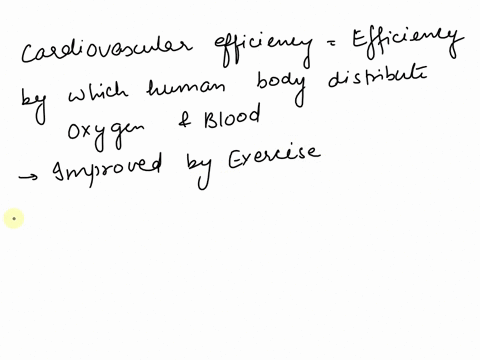 Cardiovascular efficiency = Efficiency
by which human body distribute
Oxygen & Blood
→ Improved by Exercise